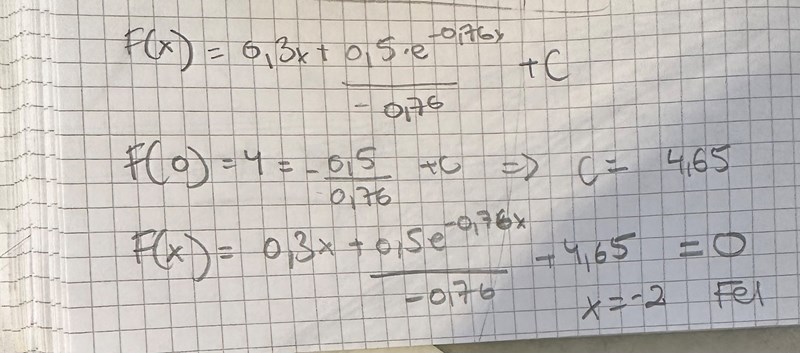 F(x) = 0,3x + 0,5·e^-0,76x / -0,76 + C
F(0) = 4 = - 0,5 / 0,76 + C => C = 4,65
F(x) = 0,3x + 0,5e^-0,76x / -0,76 + 4,65 = 0
x = -2 Fel